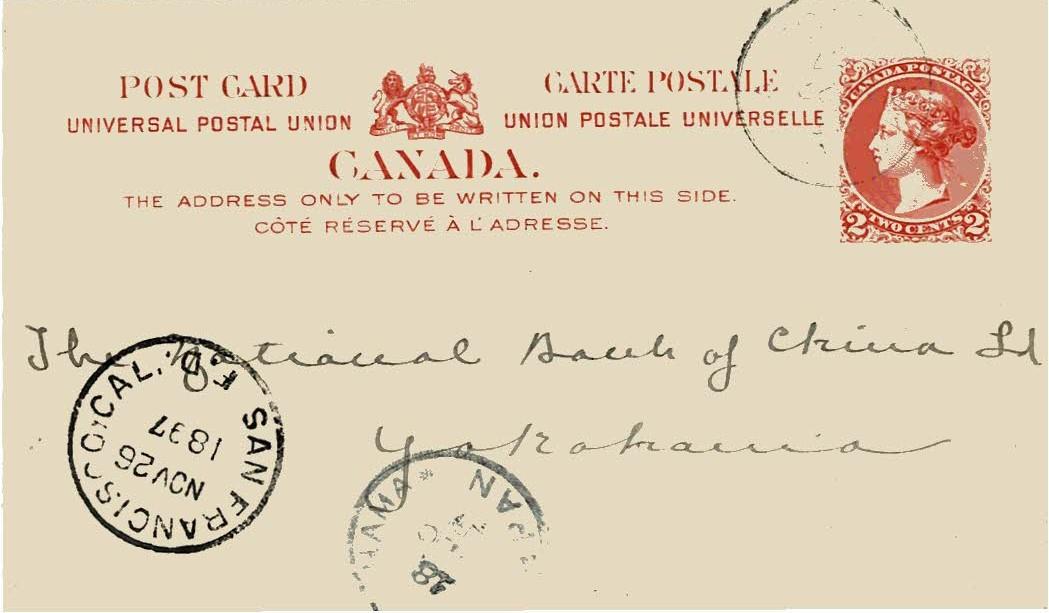 POST CARD CARTE POSTALE
UNIVERSAL POSTAL UNION UNION POSTALE UNIVERSELLE
CANADA.
THE ADDRESS ONLY TO BE WRITTEN ON THIS SIDE.
CÔTÉ RÉSERVÉ À L'ADRESSE.
CANADA POSTAGE
2 TWO CENTS 2
The National Bank of China Ld
Yokohama
SAN FRANCISCO, CAL. F.D.
NOV 26
1897
HAMA * PAN